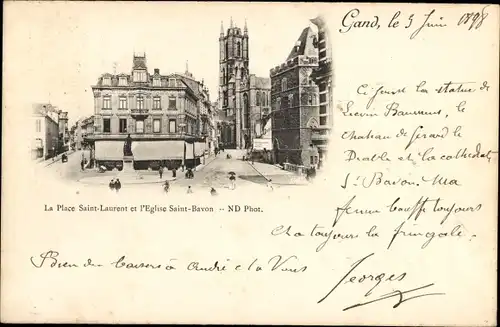 Gand, le 5 Juin 1898
Ci joint la statue de
Liévin Bauwens, le
Chateau de Gérard le
Diable et la cathédrale
St Bavon. Ma
femme bouffe toujours
et a toujours la fringale.
La Place Saint-Laurent et l'Eglise Saint-Bavon. -- ND Phot.
Bien des baisers à André et à Vous
Georges